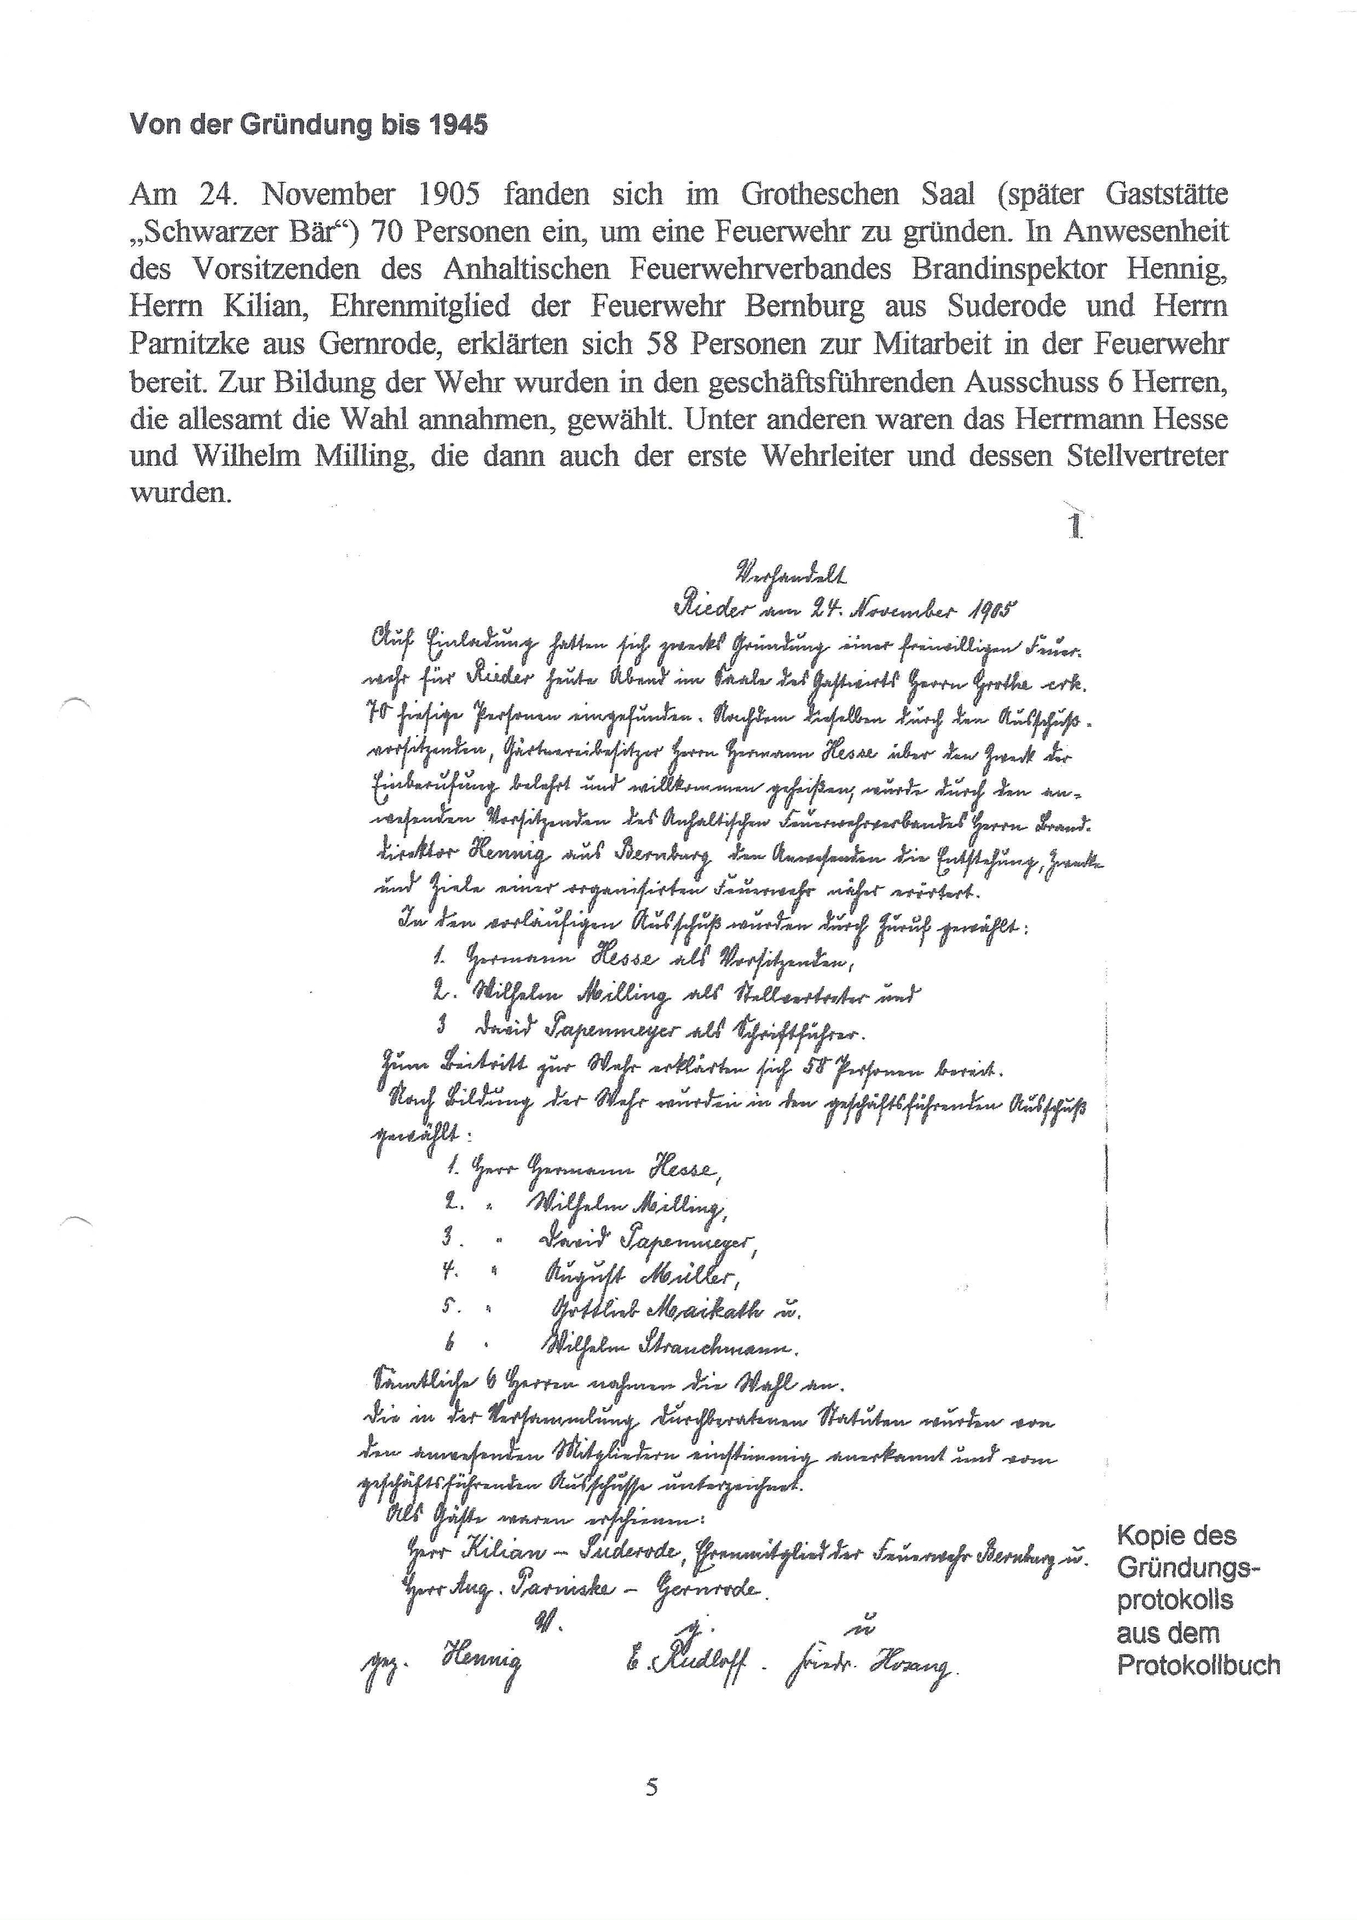 Von der Gründung bis 1945
Am 24. November 1905 fanden sich im Grotheschen Saal (später Gaststätte
„Schwarzer Bär“) 70 Personen ein, um eine Feuerwehr zu gründen. In Anwesenheit
des Vorsitzenden des Anhaltischen Feuerwehrverbandes Brandinspektor Hennig,
Herrn Kilian, Ehrenmitglied der Feuerwehr Bernburg aus Suderode und Herrn
Parnitzke aus Gernrode, erklärten sich 58 Personen zur Mitarbeit in der Feuerwehr
bereit. Zur Bildung der Wehr wurden in den geschäftsführenden Ausschuss 6 Herren,
die allesamt die Wahl annahmen, gewählt. Unter anderen waren das Herrmann Hesse
und Wilhelm Milling, die dann auch der erste Wehrleiter und dessen Stellvertreter
wurden.
1
Verhandelt
Rieder am 24. November 1905
Auf Einladung hatten sich zwecks Gründung einer freiwilligen Feuer-
wehr für Rieder heute Abend im Saale des Gastwirts Herrn Grothe
70 hiesige Personen eingefunden. Nachdem dieselben durch den Ausschuß-
vorsitzenden, Gärtnereibesitzer Herrn Hermann Hesse über den Zweck der
Einberufung belehrt und willkommen geheißen, wurde durch den an-
wesenden Vorsitzenden des Anhaltischen Feuerwehrverbandes Herrn Brand-
direktor Hennig aus Bernburg den Anwesenden die Entstehung, Zwecke
und Ziele einer organisirten Feuerwehr näher erörtert.
In den vorläufigen Ausschuß wurden durch Zuruf gewählt:
1. Hermann Hesse als Vorsitzenden,
2. Wilhelm Milling als Stellvertreter und
3 David Papenmeyer als Schriftführer.
Zum Beitritt zur Wehr erklärten sich 58 Personen bereit.
Nach Bildung der Wehr wurden in den geschäftsführenden Ausschuß
gewählt:
1. Herr Hermann Hesse,
2. " Wilhelm Milling,
3. " David Papenmeyer,
4. " August Müller,
5. " Gottlieb Maikath u.
6 " Wilhelm Strauchmann.
Sämtliche 6 Herren nahmen die Wahl an.
Die in der Versammlung durchberatenen Statuten wurden von
den anwesenden Mitgliedern einstimmig anerkannt und vom
geschäftsführenden Ausschusse unterzeichnet.
Als Gäste waren erschienen:
Herr Kilian – Suderode, Ehrenmitglied der Feuerwehr Bernburg u.
Herr Aug. Parniske – Gernrode.
V. g. u
gez. Hennig E. Rudloff. Friedr. Hosang.
Kopie des
Gründungs-
protokolls
aus dem
Protokollbuch
5